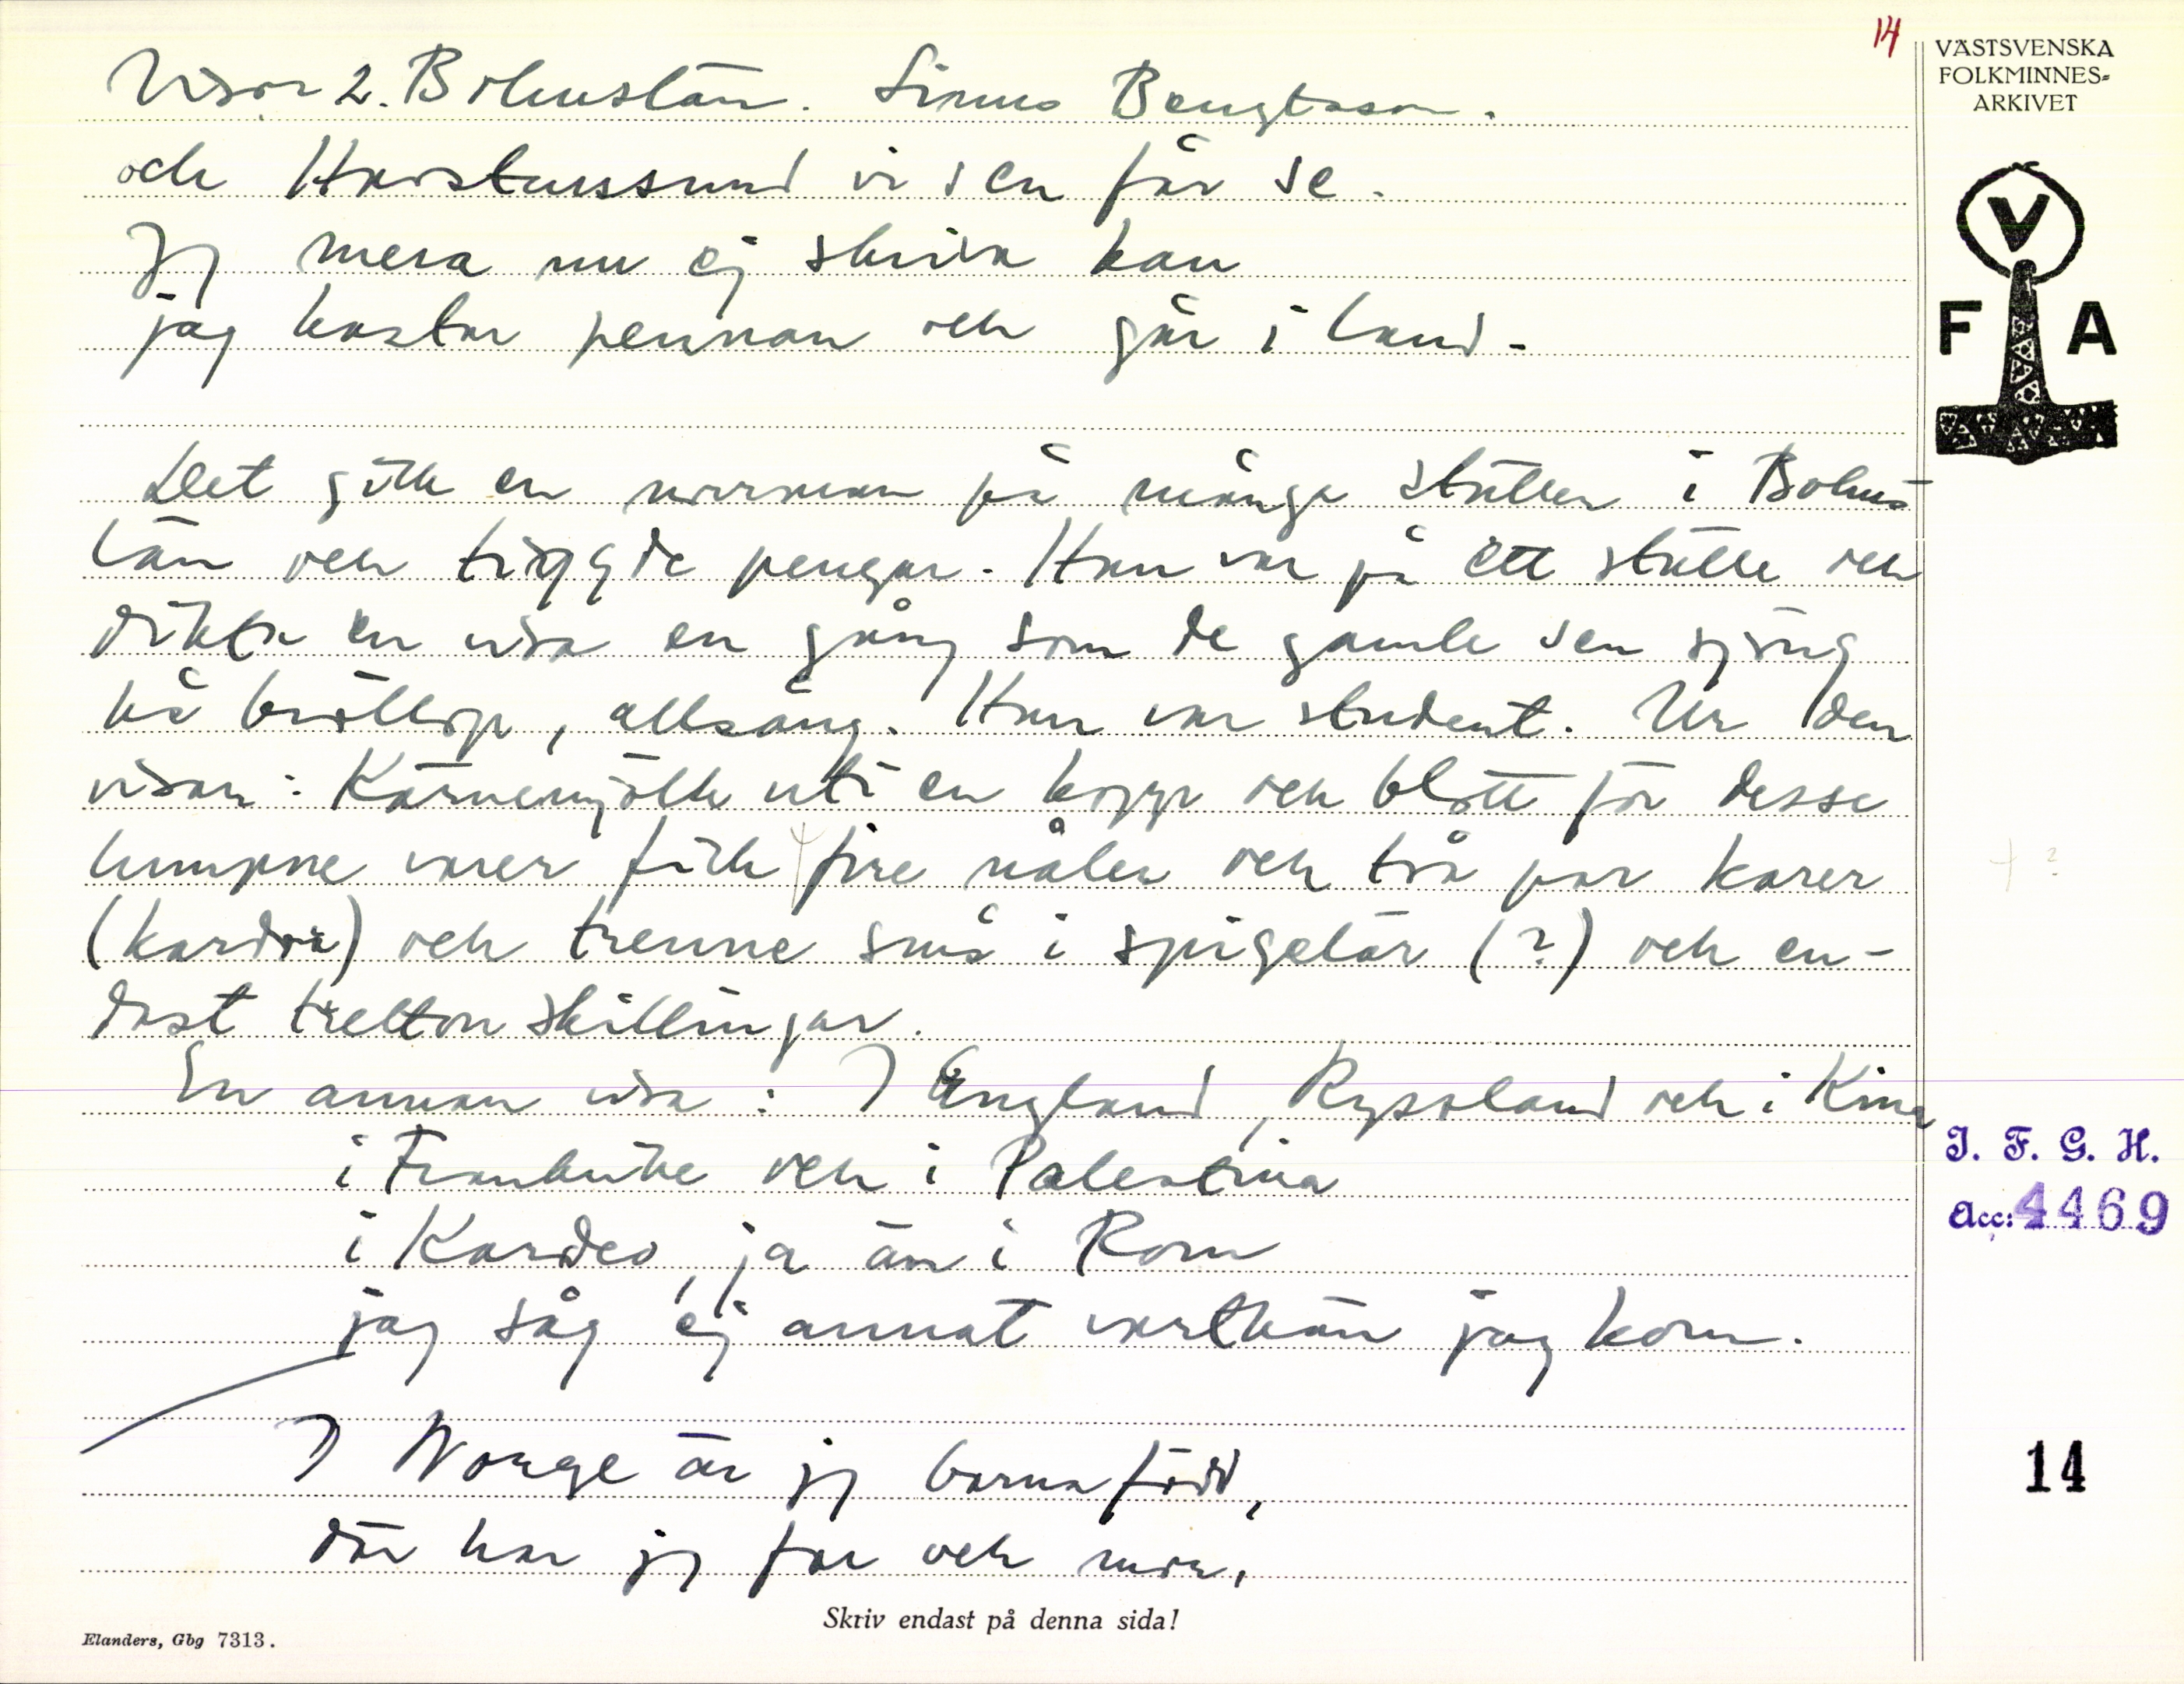 14
VÄSTSVENSKA
FOLKMINNES=
ARKIVET
V
F A
Visor 2. Bohuslän. Linus Bengtsson.
och Haistenssund vi sen får se.
Jg mera nu ej skriva kan
jag kastar pennan och går i land.
Det gick en norrman på många ställen i Bohus
län och tiggde pengar. Han var på ett ställe och
dikta en visa en gång som de gamle sen sjöng
på bröllop, allsång. Han var student. Ur den
visan: Kärnemjölk uti en kopp och blott för desse
lumpne varer fick fire nåler och två par karer
(kardor) och trenne små i spigelär (?) och en-
dast tretton skillingar.
En annan visa: I England, Ryssland och i Kina
i Frankrike och i Palestina
i Kardeo, ja än i Rom
jag såg ej annat varthän jag kom.
I Norge är jg barnafödd,
där har jg far och mor,
+ ?
I. F. G. H.
Acc: 4469
14
Skriv endast på denna sida!
Elanders, Gbg 7313.